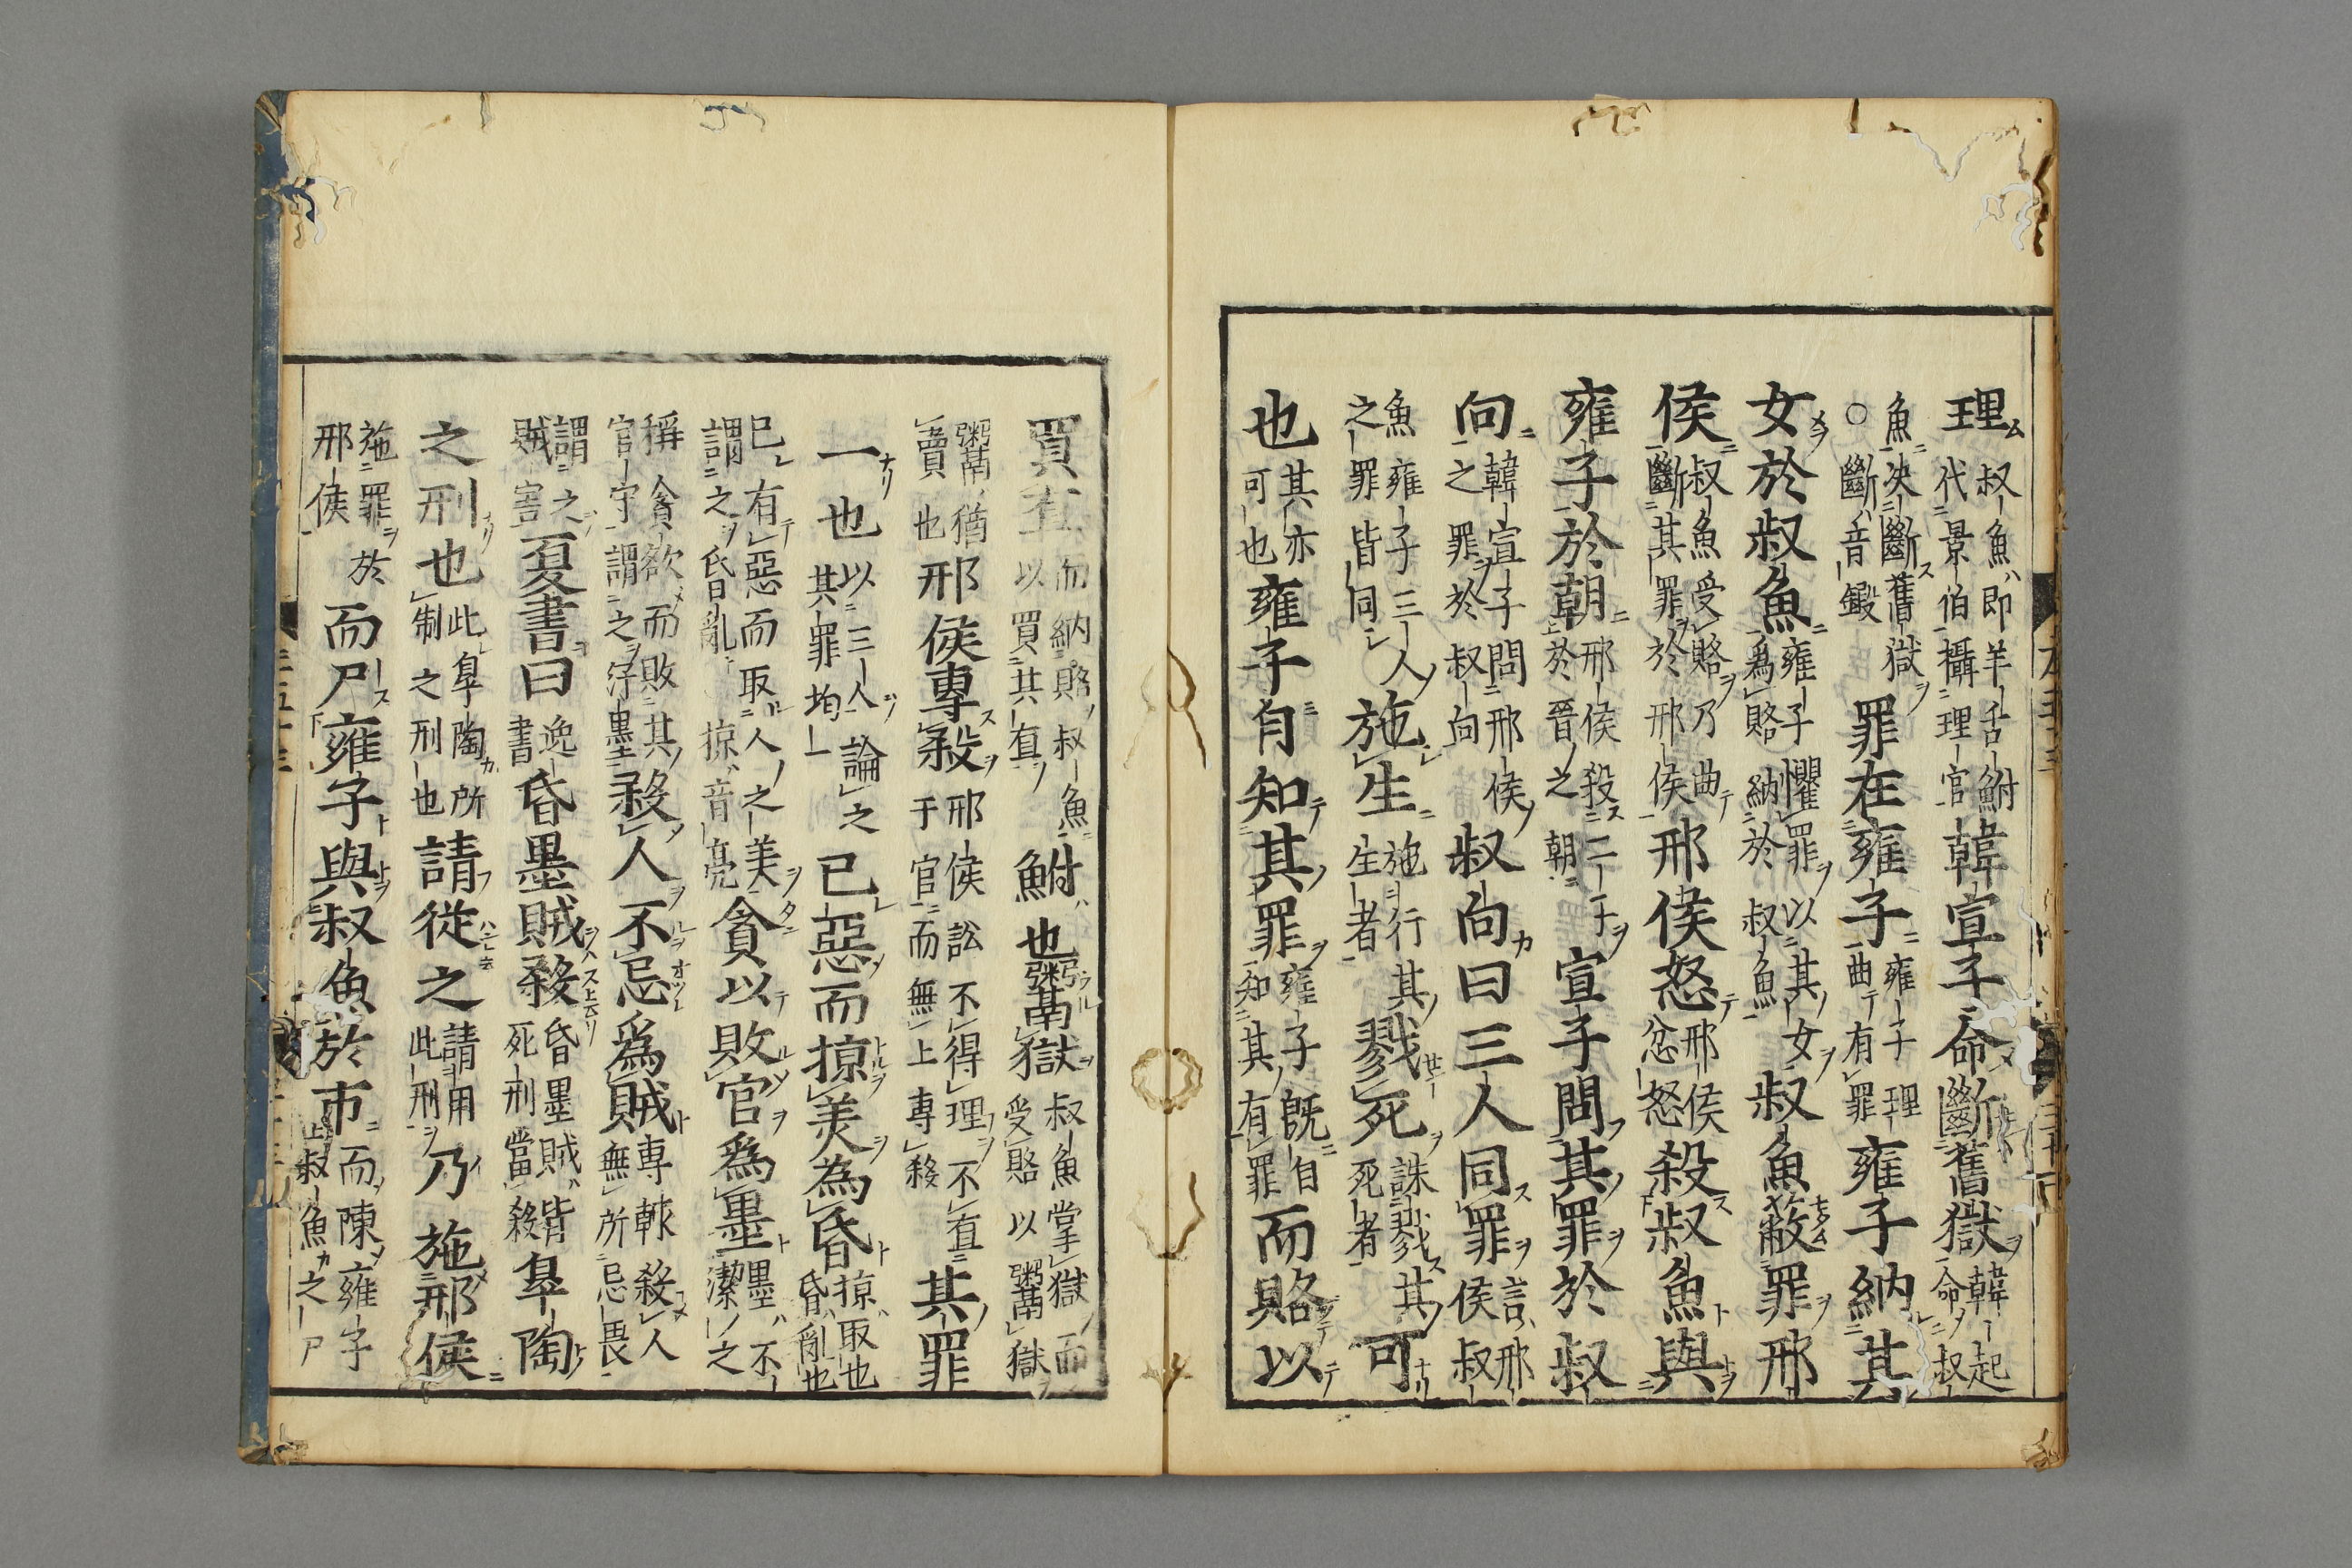 理叔魚即羊舌鮒代景伯攝理官韓宣子命斷舊獄韓起命叔
魚決斷舊獄○斷音鍛罪在雍子雍子理曲有罪雍子納其
女於叔魚雍子懼罪以其女爲賂納於叔魚叔魚蔽罪邢
侯叔魚受賂乃曲斷其罪於邢侯邢侯怒邢侯忿怒殺叔魚與
雍子於朝邢侯殺二子於晉之朝宣子問其罪於叔
向韓宣子問邢侯之罪於叔向叔向曰三人同罪言邢侯叔
魚雍子三人之罪皆同施生施行其生者戮死誅戮其死者可
也其亦可也雍子自知其罪雍子既自知其有罪而賂以
買直而納賂叔魚以買其直鮒也鬻獄叔魚掌獄而受賂以鬻獄
鬻猶賣也邢侯專殺邢侯訟不得理不直于官而無上專殺其罪
一也以三人論之其罪均一已惡而掠美為昏掠取也昏亂也
已有惡而取人之美謂之昏亂掠音亮貪以敗官爲墨墨不潔之
稱貪欲而敗其官守謂之汙墨殺人不忌爲賊專輒殺人無所忌畏
謂之賊害夏書曰逸書昏墨賊殺昏墨賊皆死刑當殺皐陶
之刑也此皐陶所制之刑也請從之請用此刑乃施邢侯
施罪於邢侯而尸雍子與叔魚於市而陳雍子叔魚之尸